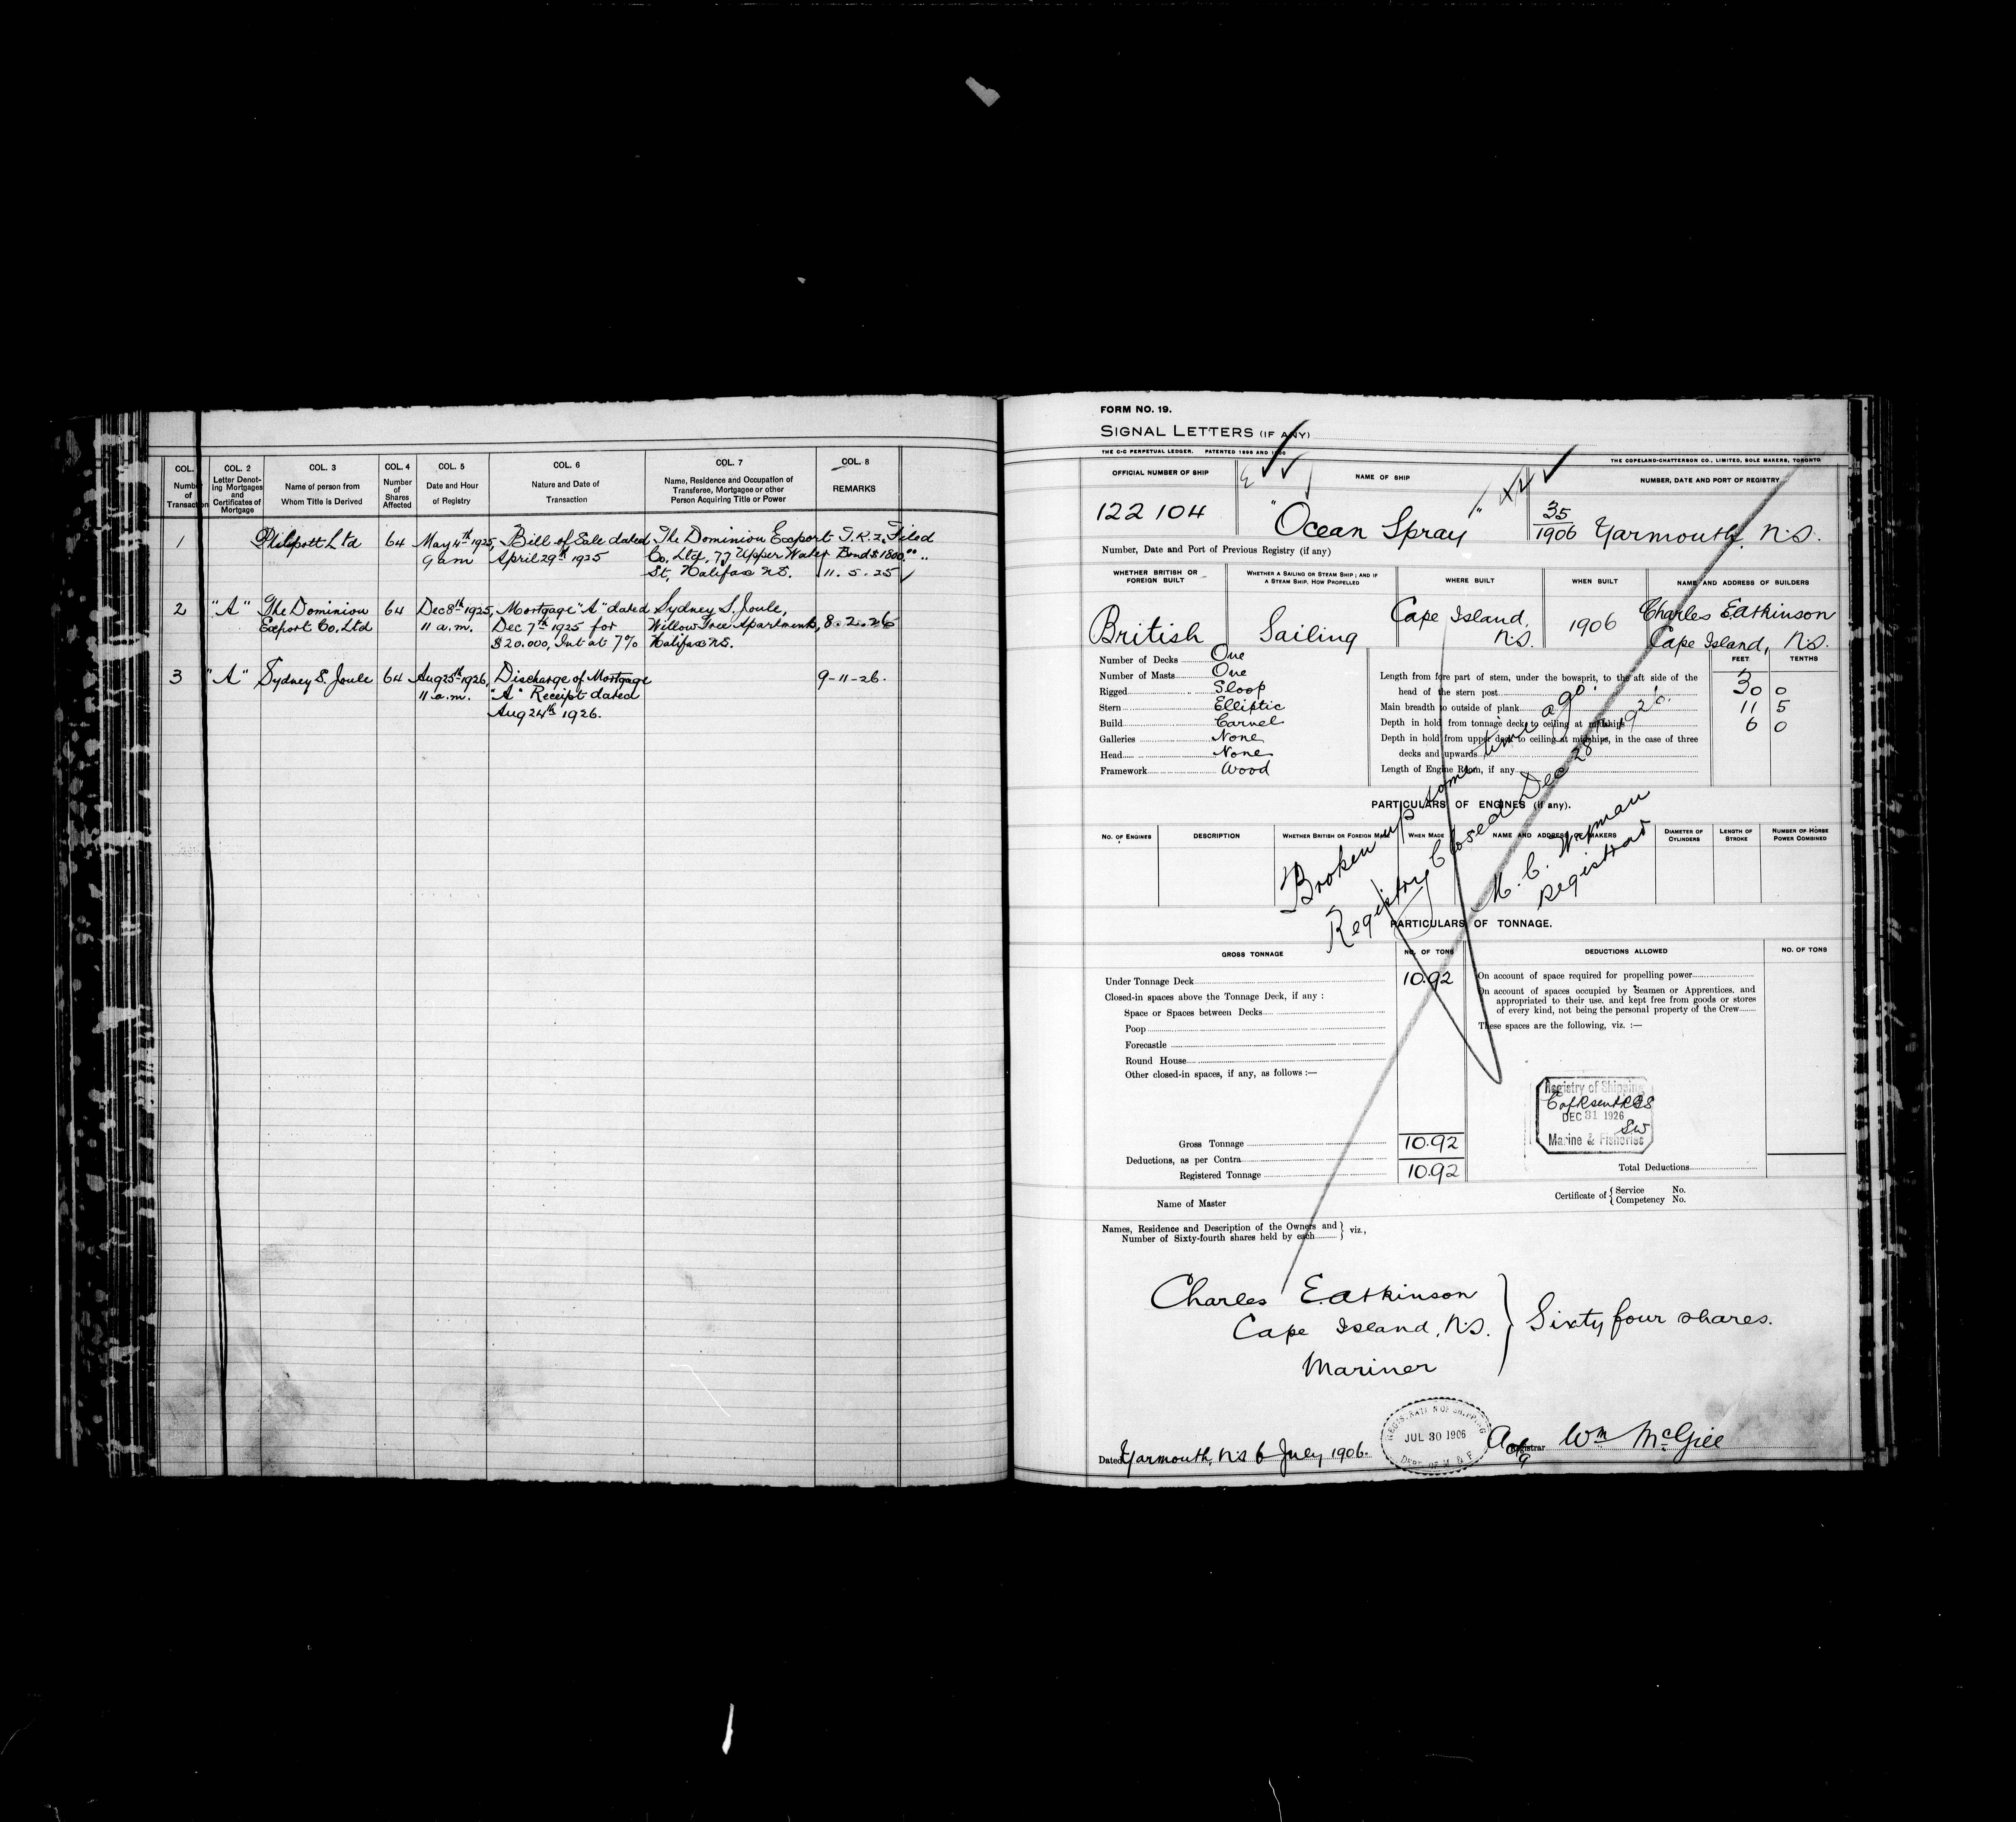 COL.
Number
of
Transaction
COL. 2
Letter Denot-
ing Mortgages
and
Certificates of
Mortgage
COL. 3
Name of person from
Whom Title is Derived
COL. 4
Number
of
Shares
Affected
COL. 5
Date and Hour
of Registry
COL. 6
Nature and Date of
Transaction
COL. 7
Name, Residence and Occupation of
Transferee, Mortgagee or other
Person Acquiring Title or Power
COL. 8
REMARKS
1 Philpott Ltd 64 May 4th 1925, Bill of Sale dated The Dominion Export T.R.2. Filed
9 am April 29th 1925 Co. Ltd, 77 Upper Water Bond $1800.00 "
St, Halifax N.S. 11. 5. 25
2 "A" The Dominion 64 Dec 8th 1925, Mortgage "A" dated Sydney S. Joule,
Export Co. Ltd 11 a.m. Dec 7th 1925 for Willow Tree Apartments, 8. 2. 26
$20.000, Int at 7% Halifax N.S.
3 "A" Sydney S. Joule 64 Aug 25th 1926, Discharge of Mortgage 9-11-26.
11 a.m. "A" Receipt dated
Aug 24th 1926.
FORM NO. 19.
SIGNAL LETTERS (IF ANY)
THE C-C PERPETUAL LEDGER. PATENTED 1896 AND
THE COPELAND-CHATTERSON CO., LIMITED, SOLE MAKERS, TORONTO
OFFICIAL NUMBER OF SHIP
NAME OF SHIP
NUMBER, DATE AND PORT OF REGISTRY
122 104
"Ocean Spray"
35
1906 Yarmouth, N.S.
Number, Date and Port of Previous Registry (if any)
WHETHER BRITISH OR
FOREIGN BUILT
WHETHER A SAILING OR STEAM SHIP; AND IF
A STEAM SHIP, HOW PROPELLED
WHERE BUILT
WHEN BUILT
NAME AND ADDRESS OF BUILDERS
British
Sailing
Cape Island,
N.S.
1906
Charles E. Atkinson
Cape Island, N.S.
FEET TENTHS
Number of Decks One
Number of Masts One
Rigged Sloop
Stern Elliptic
Build Carvel
Galleries None
Head None
Framework Wood
Length from fore part of stem, under the bowsprit, to the aft side of the
head of the stern post 30 0
Main breadth to outside of plank 11 5
Depth in hold from tonnage deck to ceiling at midships 6 0
Depth in hold from upper deck to ceiling at midships, in the case of three
decks and upwards
Length of Engine Room, if any
Broken up some time ago.
Registry Closed Dec 28th 1926.
Registrar
PARTICULARS OF ENGINES (if any).
NO. OF ENGINES
DESCRIPTION
WHETHER BRITISH OR FOREIGN MADE
WHEN MADE
NAME AND ADDRESS OF MAKERS
DIAMETER OF
CYLINDERS
LENGTH OF
STROKE
NUMBER OF HORSE
POWER COMBINED
PARTICULARS OF TONNAGE.
GROSS TONNAGE
NO. OF TONS
DEDUCTIONS ALLOWED
NO. OF TONS
Under Tonnage Deck 10.92
Closed-in spaces above the Tonnage Deck, if any :
Space or Spaces between Decks
Poop
Forecastle
Round House
Other closed-in spaces, if any, as follows :—
Gross Tonnage 10.92
Deductions, as per Contra
Registered Tonnage 10.92
On account of space required for propelling power
On account of spaces occupied by Seamen or Apprentices, and
appropriated to their use, and kept free from goods or stores
of every kind, not being the personal property of the Crew
These spaces are the following, viz. :—
Registry of Shipping
DEC 31 1926
Marine & Fisheries
Total Deductions
Name of Master
Certificate of { Service No.
Competency No.
Names, Residence and Description of the Owners and
Number of Sixty-fourth shares held by each } viz.,
Charles E. Atkinson
Cape Island, N.S.
Mariner
Sixty four shares.
Dated Yarmouth, N.S. 6 July 1906.
REGISTRATION OF SHIPPING
JUL 30 1906
DEPT. OF M. & F.
Actg Registrar Wm McGill